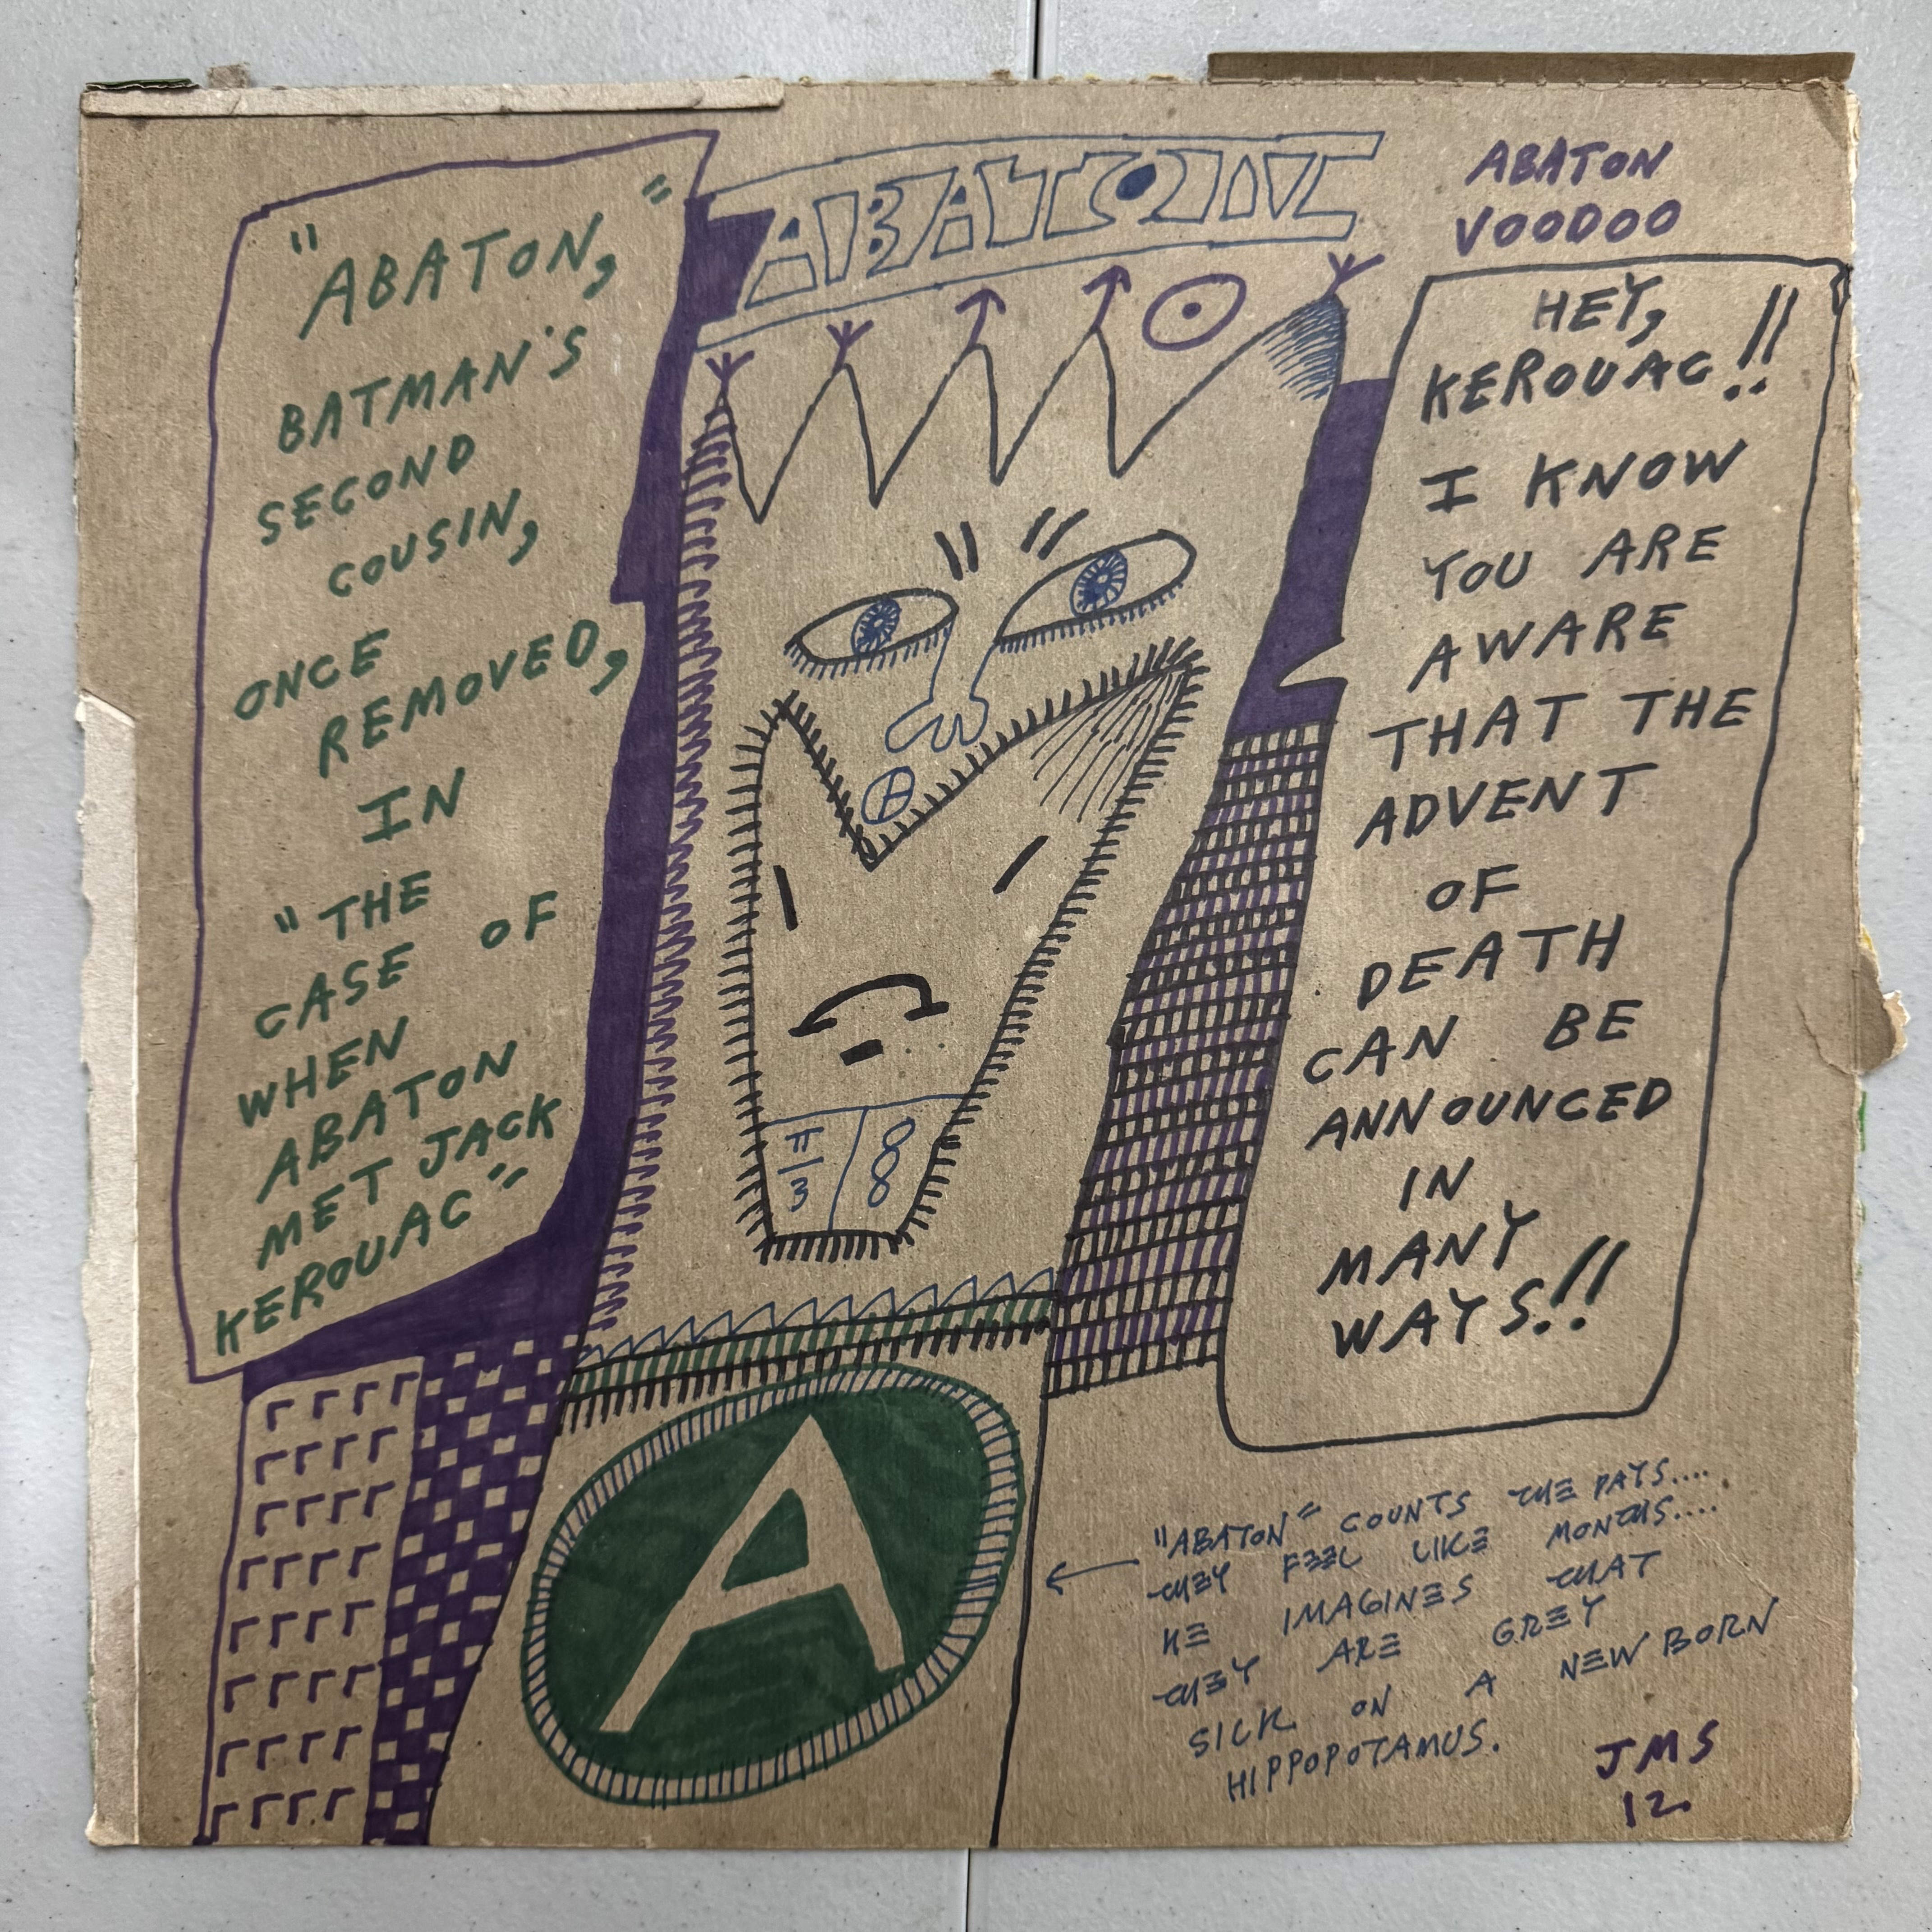 "ABATON,"
BATMAN'S
SECOND
COUSIN,
ONCE
REMOVED,
IN
"THE
CASE OF
WHEN
ABATON
MET JACK
KEROUAC"
ABATON
ABATON
VOODOO
HEY,
KEROUAC!!
I KNOW
YOU ARE
AWARE
THAT THE
ADVENT
OF
DEATH
CAN BE
ANNOUNCED
IN
MANY
WAYS!!
π
3
8
8
A
"ABATON" COUNTS THE DAYS....
THEY FEEL LIKE MONTHS....
HE IMAGINES THAT
THEY ARE GREY
SICK ON A NEW BORN
HIPPOPOTAMUS.
JMS
12.